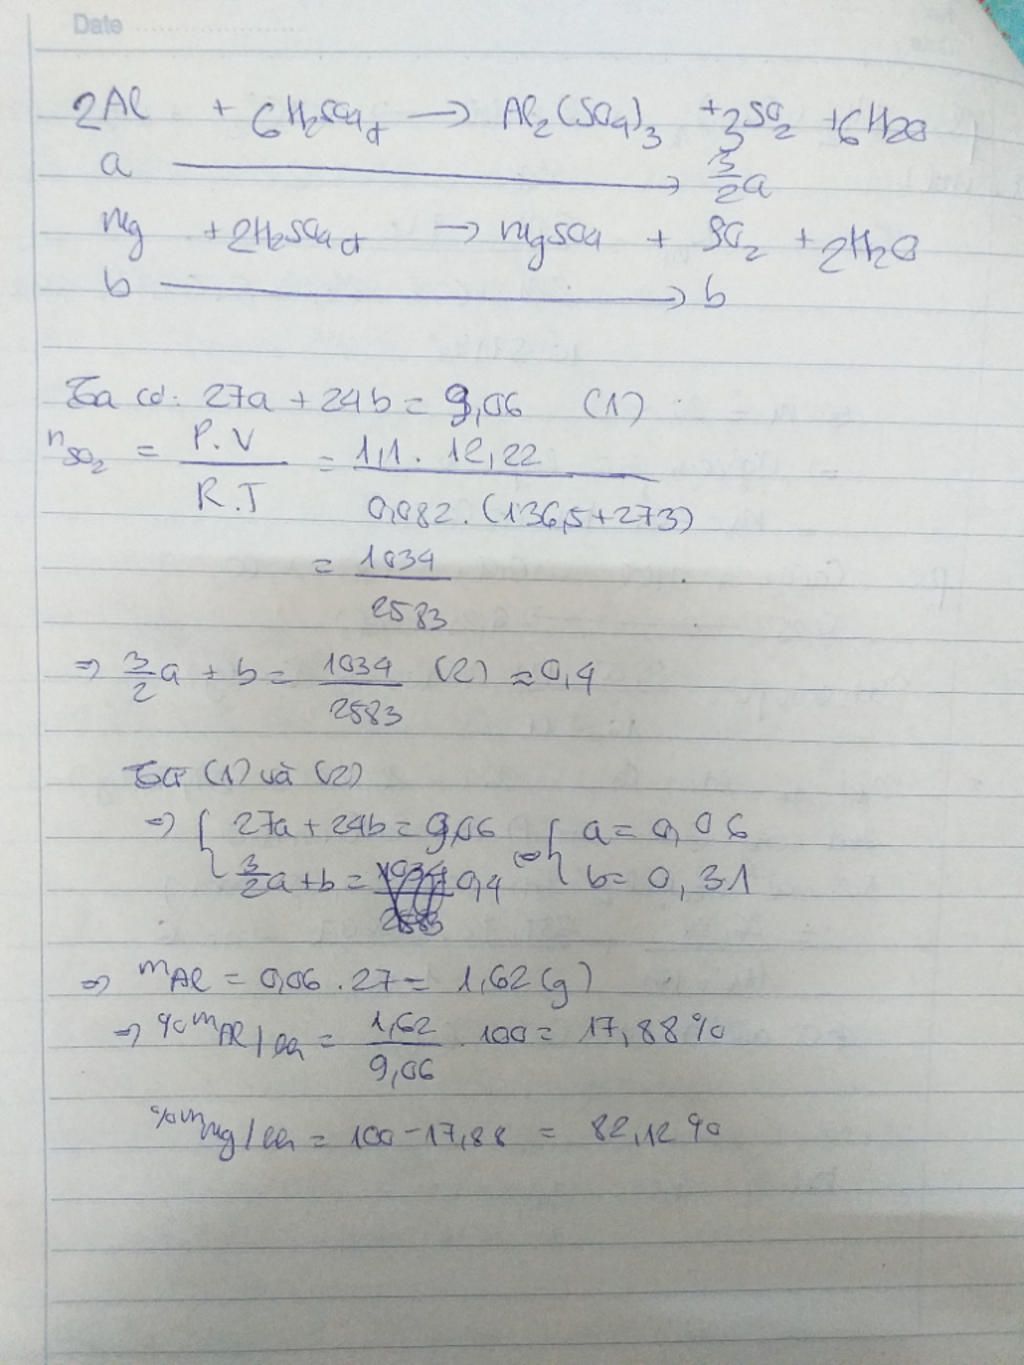 Date
2Al + 6H₂SO₄đ → Al₂(SO₄)₃ + 3SO₂ + 6H₂O
a → 3/2a
Mg + 2H₂SO₄đ → MgSO₄ + SO₂ + 2H₂O
b → b
Ta có: 27a + 24b = 9,06 (1)
nSO₂ = P.V/R.T = 1,1 . 12,22/0,082.(136,5+273)
= 1034/2583
⇒ 3/2a + b = 1034/2583 (2) ≈ 0,4
Từ (1) và (2)
⇒ { 27a + 24b = 9,06 { a = 0,06
3/2a + b = 0,4 ⇔ b = 0,31
⇒ mAl = 0,06 . 27 = 1,62 (g)
⇒ %mAl/hh = 1,62/9,06 . 100 = 17,88%
%mMg/hh = 100 - 17,88 = 82,12%